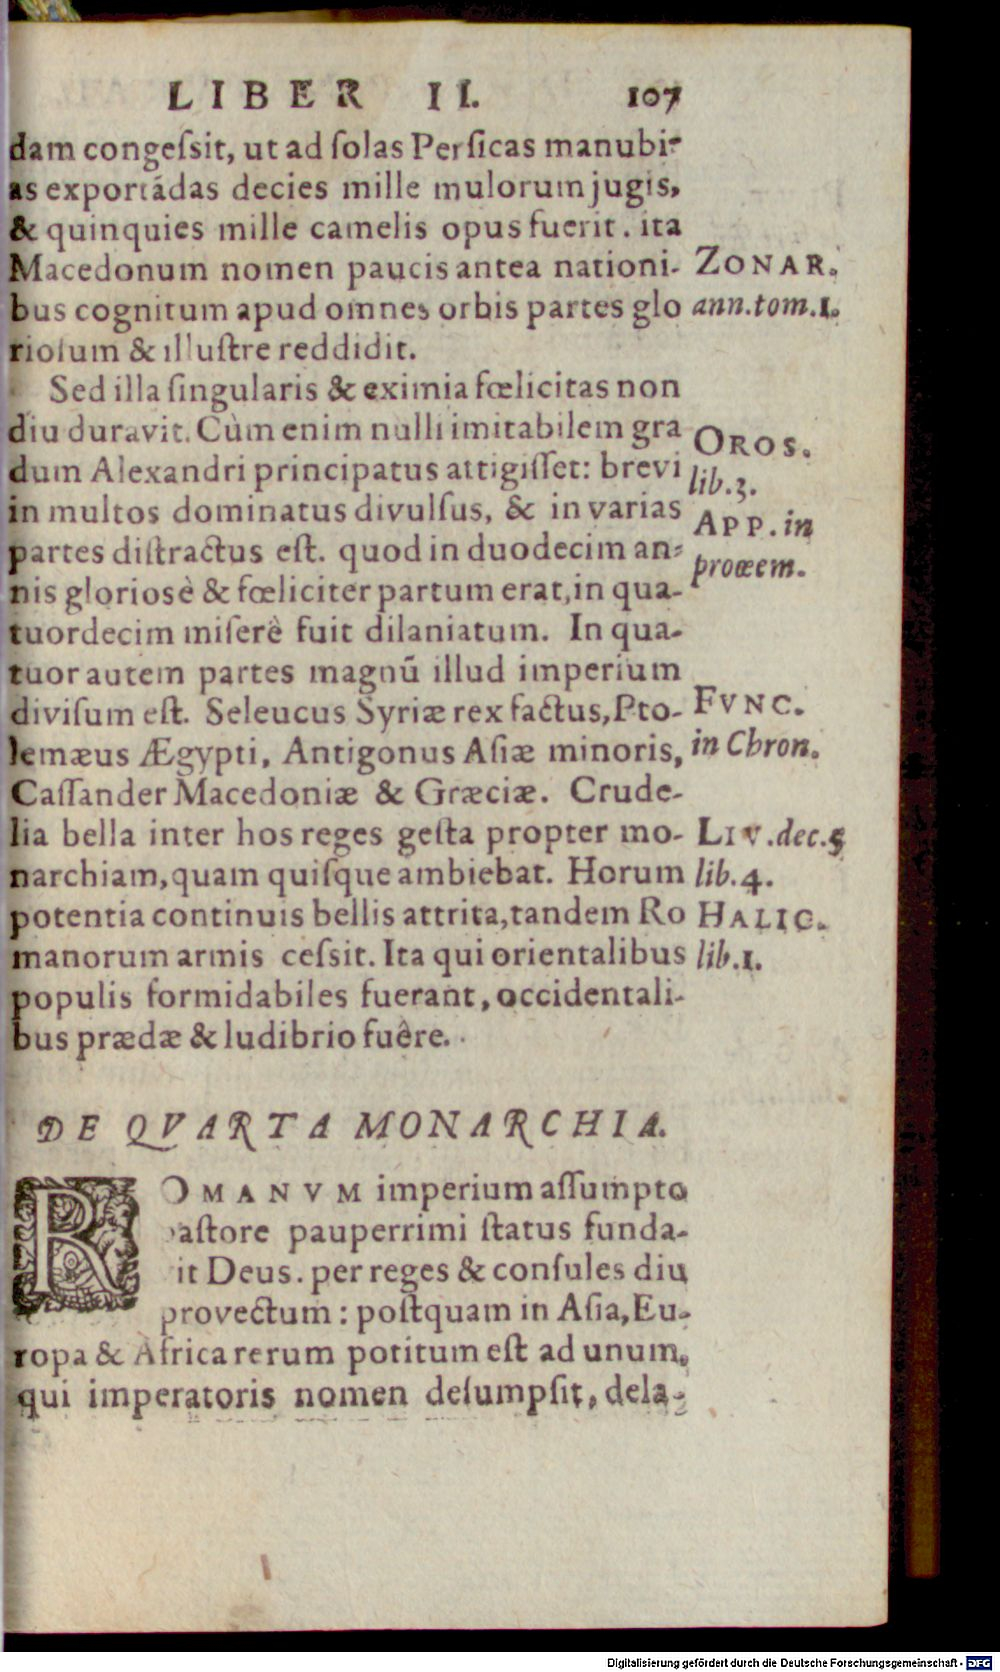 LIBER II. 107
dam congeſsit, ut ad ſolas Perſicas manubi-
as exportãdas decies mille mulorum jugis,
& quinquies mille camelis opus fuerit. ita
Macedonum nomen paucis antea nationi-
bus cognitum apud omnes orbis partes glo
rioſum & illuſtre reddidit.
ZONAR.
ann.tom.1.
Sed illa ſingularis & eximia fœlicitas non
diu duravit. Cùm enim nulli imitabilem gra
dum Alexandri principatus attigiſſet: brevi
in multos dominatus divulſus, & in varias
partes diſtractus eſt. quod in duodecim an-
nis gloriosè & fœliciter partum erat, in qua-
tuordecim miſerè fuit dilaniatum. In qua-
tuor autem partes magnũ illud imperium
diviſum eſt. Seleucus Syriæ rex factus, Pto-
lemæus Ægypti, Antigonus Aſiæ minoris,
Caſſander Macedoniæ & Græciæ. Crude-
lia bella inter hos reges geſta propter mo-
narchiam, quam quiſque ambiebat. Horum
potentia continuis bellis attrita, tandem Ro
manorum armis ceſsit. Ita qui orientalibus
populis formidabiles fuerant, occidentali-
bus prædæ & ludibrio fuêre.
OROS.
lib.3.
APP. in
proœem.
FVNC.
in Chron.
LIV. dec.5
lib.4.
HALIC.
lib.1.
DE QVARTA MONARCHIA.
ROMANVM imperium aſſumpto
paſtore pauperrimi ſtatus funda-
it Deus. per reges & conſules diu
provectum: poſtquam in Aſia, Eu-
ropa & Africa rerum potitum eſt ad unum,
qui imperatoris nomen deſumpſit, dela-
Digitalisierung gefördert durch die Deutsche Forschungsgemeinschaft - DFG